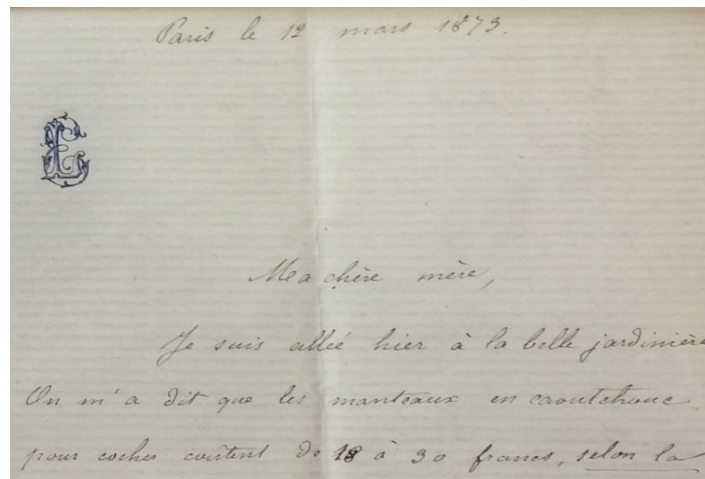 Paris le 12 mars 1873.
Ma chère mère,
Je suis allé hier à la belle jardinière
On m'a dit que les manteaux en caoutchouc
pour cocher coûtent de 18 à 30 francs, selon la